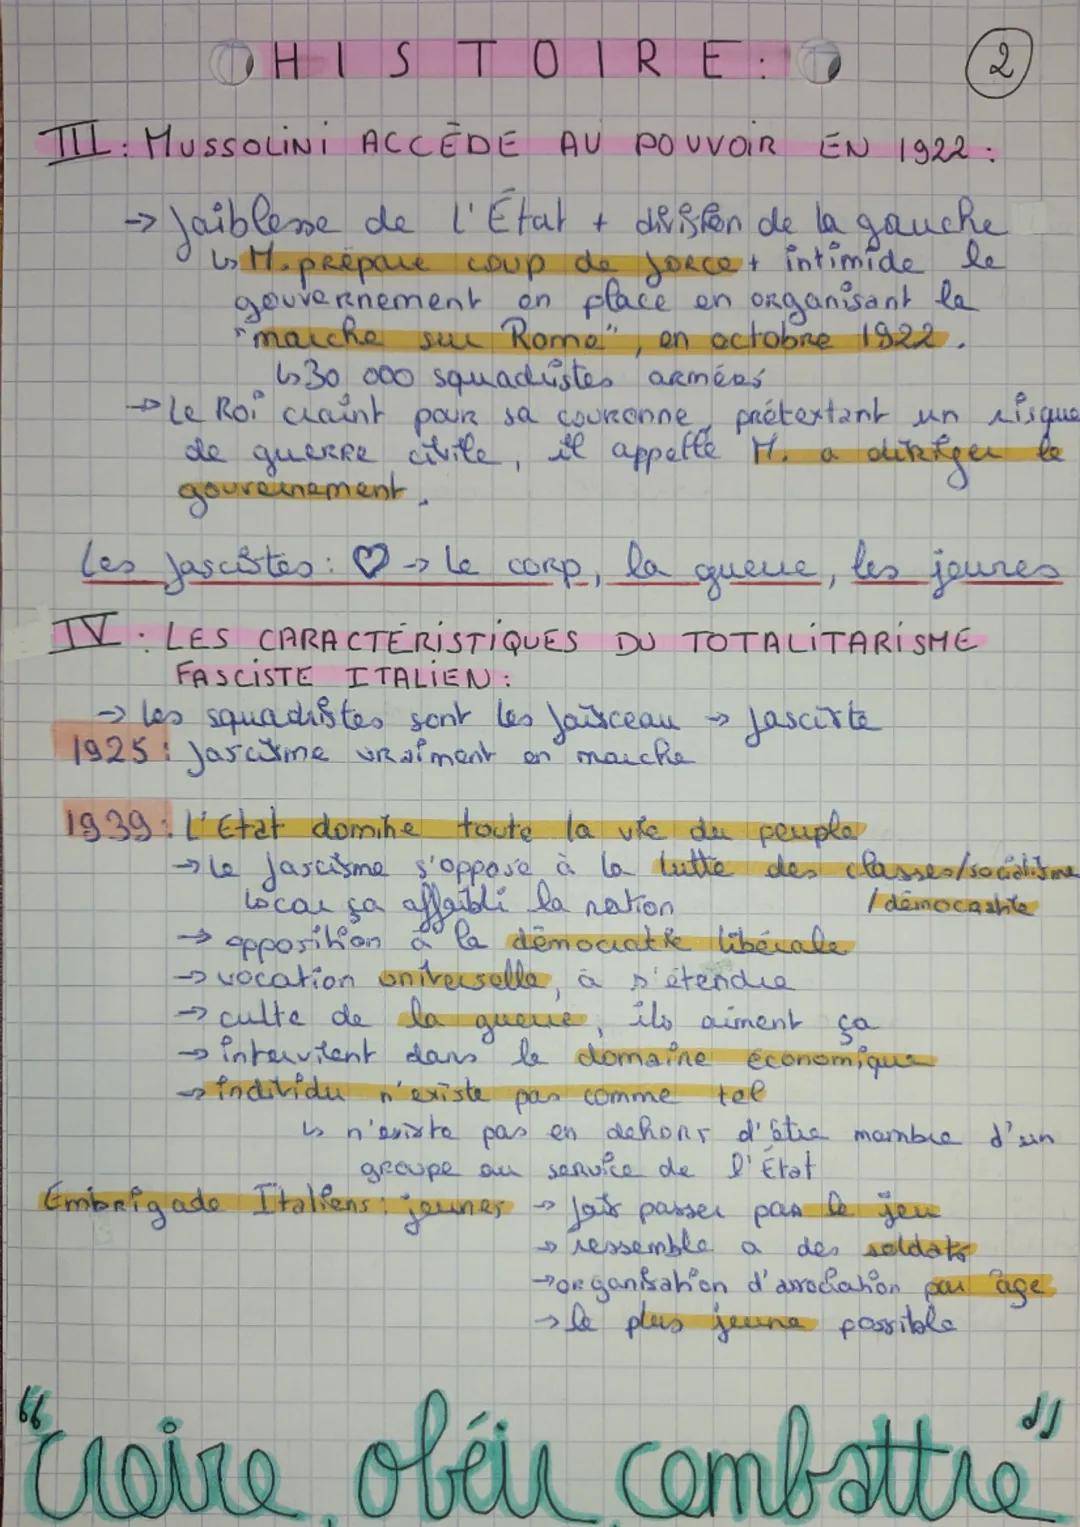 HISTOIRE: 2
III: MUSSOLINI ACCÈDE AU POUVOIR EN 1922:
→ faiblesse de l'État + division de la gauche
↳ M. prépare coup de force + intimide le
gouvernement en place en organisant la
"marche sur Rome", en octobre 1922.
↳ 30 000 squadristes armées
→ Le Roi craint pour sa couronne, prétextant un risque
de guerre civile, il appelle M. a diriger le
gouvernement.
Les fascistes: ♡ → le corp, la guerre, les jeunes
IV: LES CARACTÉRISTIQUES DU TOTALITARISME
FASCISTE ITALIEN:
→ les squadristes sont les faisceau → fasciste
1925: fascisme vraiment en marche
1939: L'Etat domine toute la vie du peuple
→ le fascisme s'oppose à la lutte des classes/socialisme
↳ car ça affaibli la nation /démocratie
→ opposition à la démocratie libérale
→ vocation universelle, à s'étendre
→ culte de la guerre, ils aiment ça
→ intervient dans le domaine économique
→ individu n'existe pas comme tel
↳ n'existe pas en dehors d'être membre d'un
groupe au service de l'État
Embrigade Italiens: jeunes → fait passer par le jeu
→ ressemble a des soldats
→ organisation d'association par âge
→ le plus jeune possible
"croire, obéir, combattre"